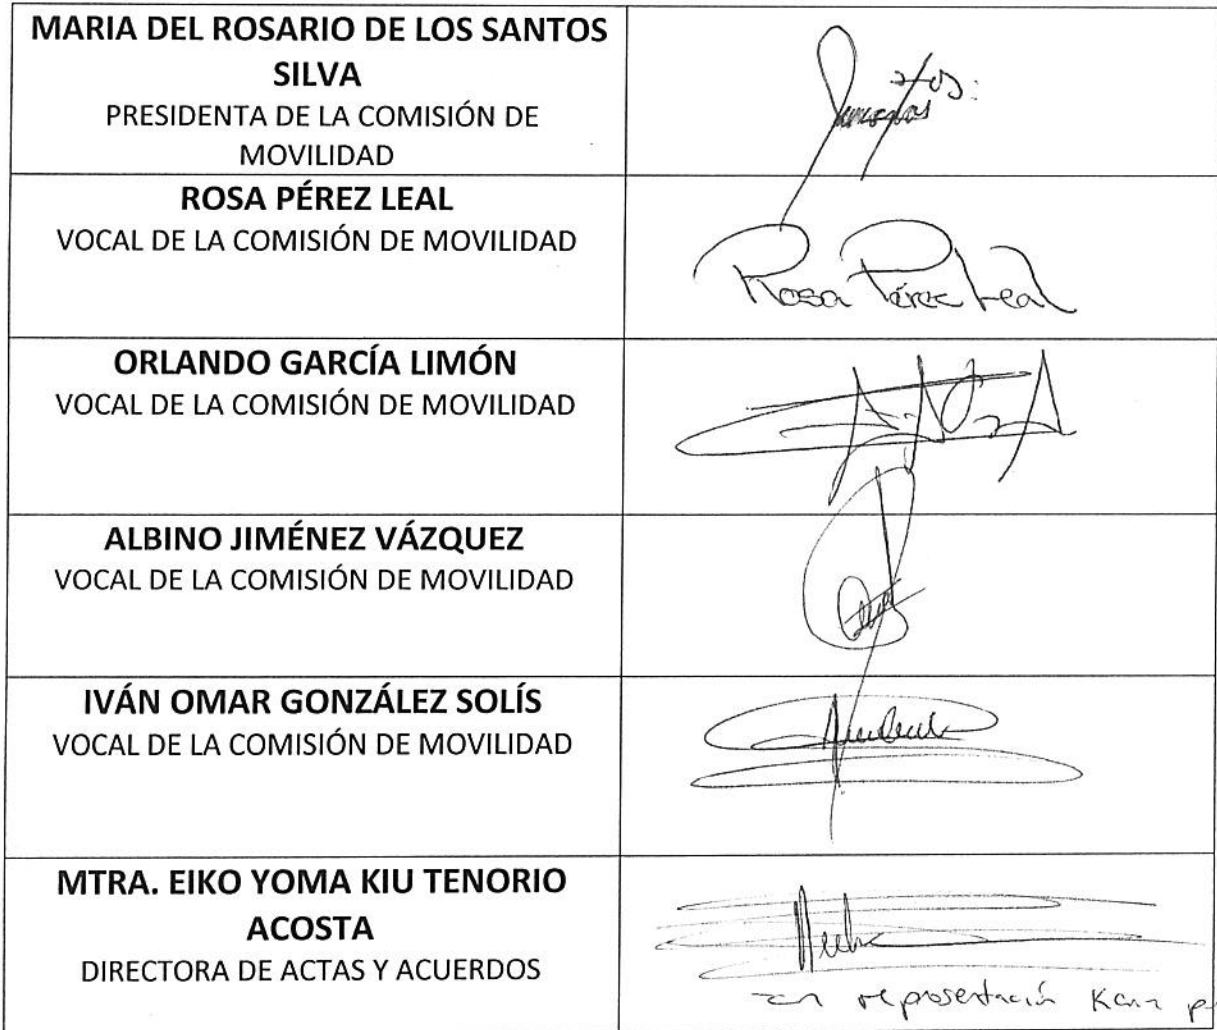 MARIA DEL ROSARIO DE LOS SANTOS
SILVA
PRESIDENTA DE LA COMISIÓN DE
MOVILIDAD
ROSA PÉREZ LEAL
VOCAL DE LA COMISIÓN DE MOVILIDAD
Rosa Pérez Leal
ORLANDO GARCÍA LIMÓN
VOCAL DE LA COMISIÓN DE MOVILIDAD
ALBINO JIMÉNEZ VÁZQUEZ
VOCAL DE LA COMISIÓN DE MOVILIDAD
IVÁN OMAR GONZÁLEZ SOLÍS
VOCAL DE LA COMISIÓN DE MOVILIDAD
MTRA. EIKO YOMA KIU TENORIO
ACOSTA
DIRECTORA DE ACTAS Y ACUERDOS
en representación